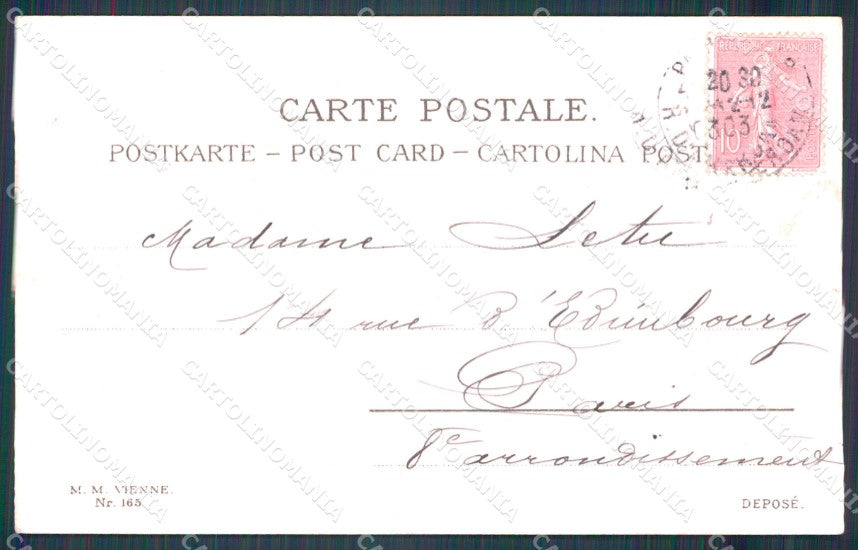 CARTE POSTALE.
POSTKARTE – POST CARD – CARTOLINA POST
REPUBLIQUE FRANÇAISE
10
20 30
03
Madame
14 rue D'Edimbourg
Paris
8e arrondissement
M. M. VIENNE.
Nr. 165
DEPOSÉ.
CARTOLINOMANIA